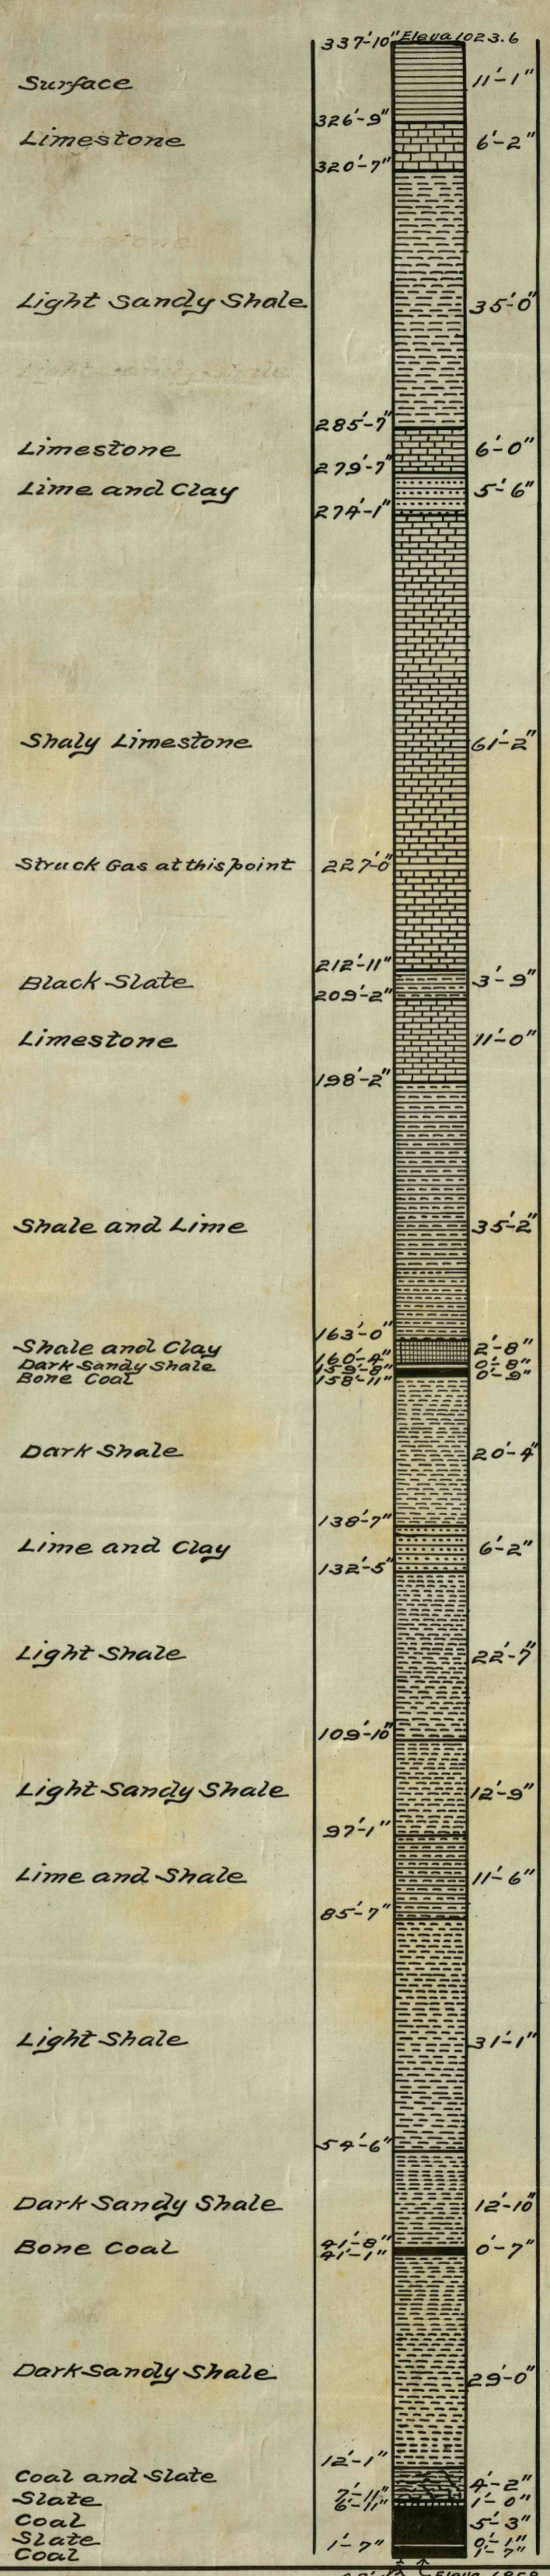 337'-10" Eleva 1023.6
Surface 11'-1"
326'-9"
Limestone 6'-2"
320'-7"
Limestone
Light Sandy Shale 35'-0"
Light Sandy Shale
285'-7"
Limestone 6'-0"
279'-7"
Lime and Clay 5'-6"
274'-1"
Shaly Limestone 61'-2"
Struck Gas at this point 227'-0"
212'-11"
Black Slate 3'-9"
209'-2"
Limestone 11'-0"
198'-2"
Shale and Lime 35'-2"
163'-0"
Shale and Clay 2'-8"
160'-4"
Dark Sandy Shale 0'-8"
159'-8"
Bone Coal 0'-9"
158'-11"
Dark Shale 20'-4"
138'-7"
Lime and Clay 6'-2"
132'-5"
Light Shale 22'-7"
109'-10"
Light Sandy Shale 12'-9"
97'-1"
Lime and Shale 11'-6"
85'-7"
Light Shale 31'-1"
54'-6"
Dark Sandy Shale 12'-10"
41'-8"
Bone Coal 0'-7"
41'-1"
Dark Sandy Shale 29'-0"
12'-1"
Coal and Slate 4'-2"
7'-11"
Slate 1'-0"
6'-11"
Coal 5'-3"
Slate 0'-1"
1'-7"
Coal 1'-7"
Eleva